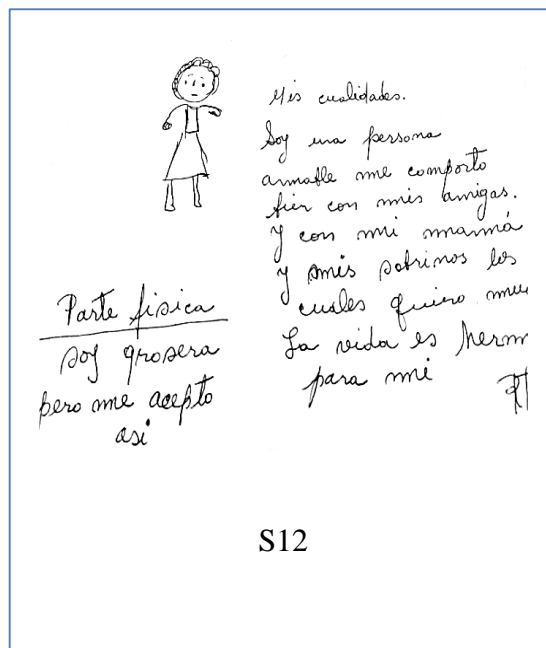 Mis cualidades.
Soy una persona
amable me comporto
bien con mis amigas.
y con mi mamá
y mis sobrinos los
cuales quiero mu
La vida es herm
para mi
Parte fisica
soy grosera
pero me acepto
asi
S12